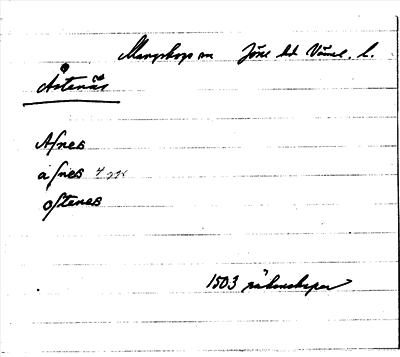 Mangskogs sn Jösse hd Värml. l.
Åstenäs
Afnes
åfnes
oftenes
1503 räkenskaper